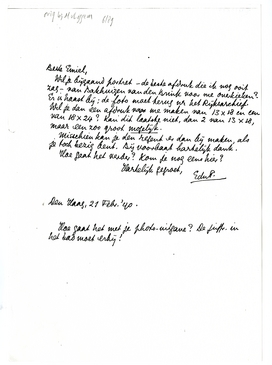 Beste Emiel,
Wil je bijgaand portret – de beste afdruk die ik nog ooit
zag – van Bakhuizen van den Brink voor me
Er is haast bij: de foto moet terug nr het Rijksarchief.
Wil je dan een afdruk voor me maken van 13 x 18 en een
van 18 x 24? Kan dit laatste niet, dan 2 van 13 x 18,
maar een zoo groot mogelijk.
Misschien kan je den er dan bij maken, als
je toch bezig bent. Bij voorbaat hartelijk dank.
Hoe gaat het verder? Kom je nog eens hier?
Hartelijk gegroet,
Den Haag, 21 Febr. '40.
Hoe gaat het met je photo-uitgave? De juffr. in
het bad moet erbij!